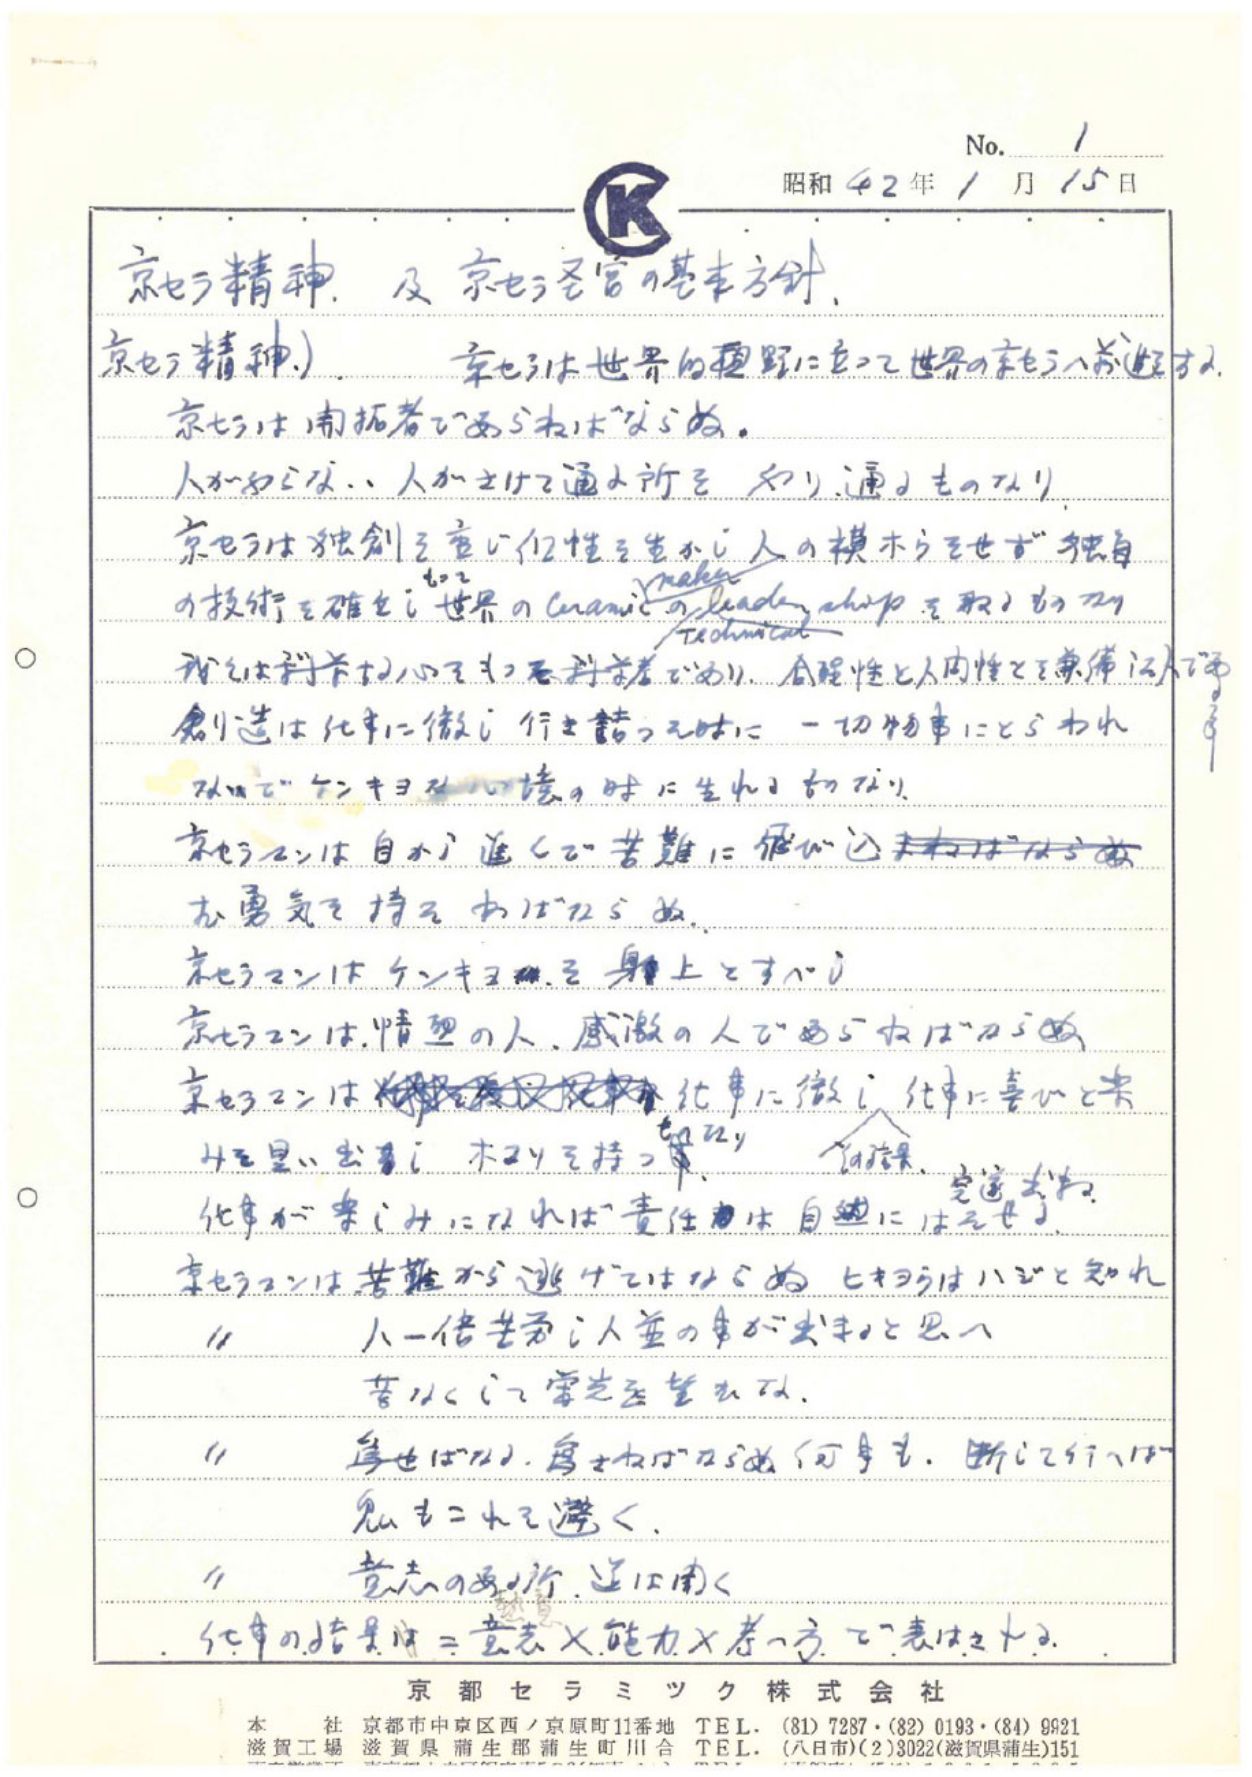 No. 1
昭和 42 年 1 月 15 日
K
京セラ精神 及 京セラ経営の基本方針.
京セラ精神) 京セラは世界的視野に立って世界の京セラへ前進する.
京セラは開拓者であらねばならぬ.
人がやらない、人がさけて通る所を やり、通るものなり
京セラは独創を重じ個性を生かし人の模ホウをせず 独自
もって maker
の技術を確立し世界の ceramic の leader ship を取るものなり
technical
我々は科学する心をもつ科学者であり、合理性と人間性とを兼備した人である事
創造は仕事に徹し行き詰った時に 一切物事にとらわれ
ないでケンキヨな心境の時に生れるものなり.
京セラマンは自から進んで苦難に飛び込まねばならぬ
む勇気を持たねばならぬ.
京セラマンはケンキヨを身上とすべし
京セラマンは情熱の人、感激の人であらねばならぬ
京セラマンは 仕事に徹し 仕事に喜びと楽
ものなり その結果.
みを見い出し ホコリを持つ事.
完遂出来る.
仕事が楽しみになれば責任は自然にはたせる.
京セラマンは苦難から逃げてはならぬ ヒキヨウはハジと知れ
〃 人一倍苦労し人並の事が出来ると思へ
苦なくして栄光を望むな.
〃 為せばなる. 為さねばならぬ何事も. 断じて行へば
鬼もこれを避く.
〃 意志のある所、道は開く
熱意
仕事の結果は = 意志 × 能力 × 考へ方 で表はされる.
京都セラミツク株式会社
本 社 京都市中京区西ノ京原町11番地 TEL. (81) 7287・(82) 0193・(84) 9921
滋賀工場 滋賀県蒲生郡蒲生町川合 TEL. (八日市)(2)3022(滋賀県蒲生)151